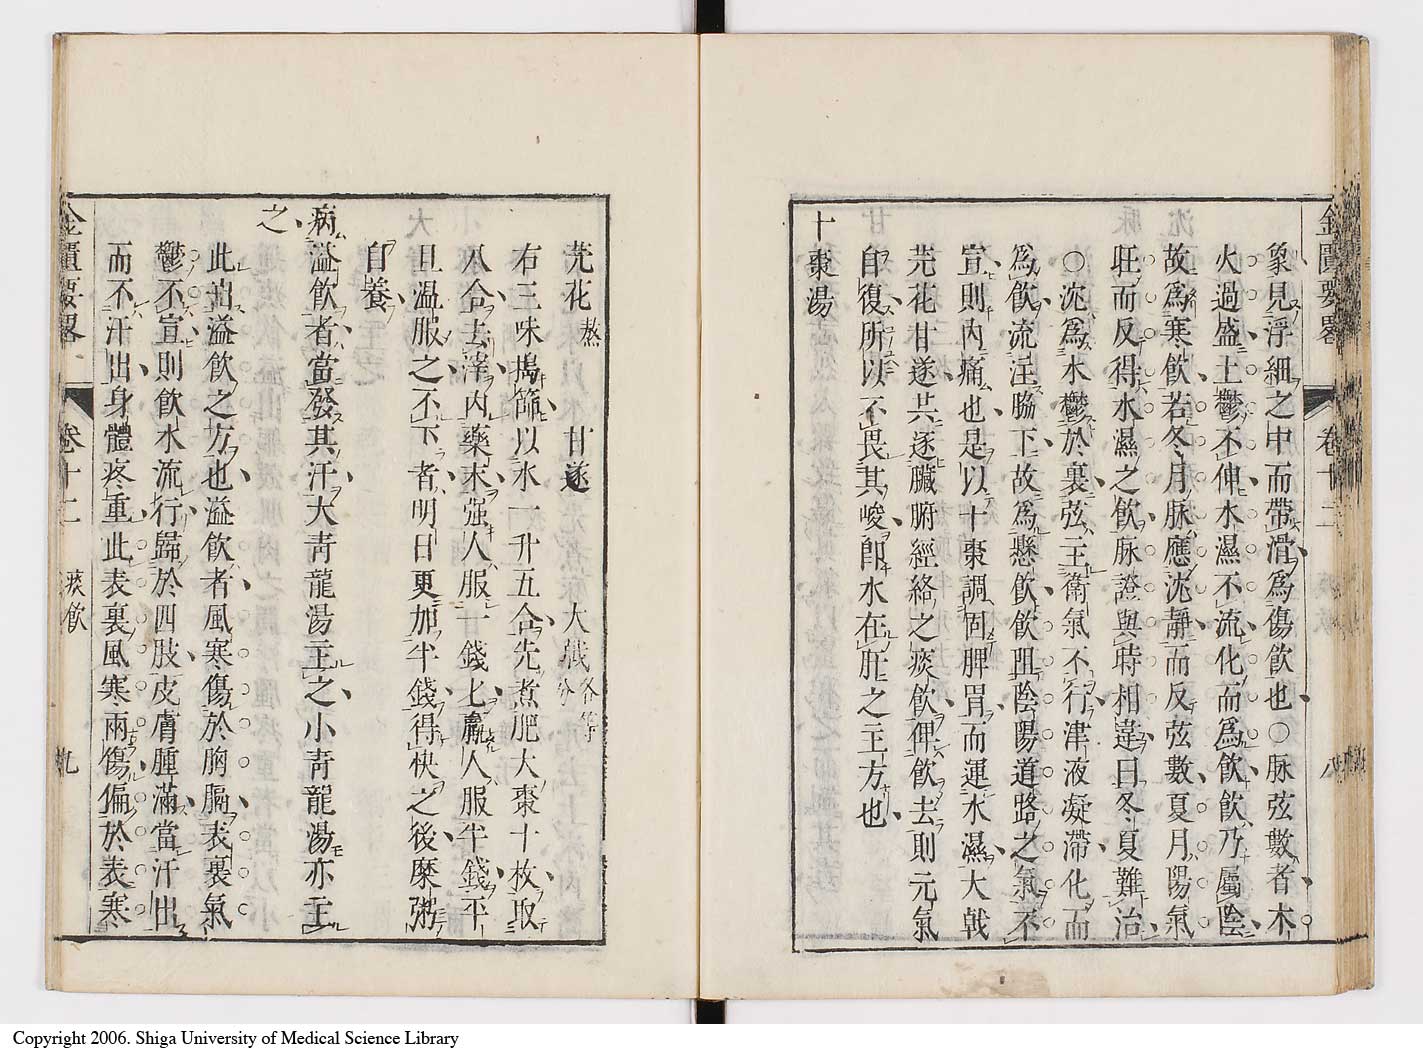 金匱要畧 卷十二 八
象見浮細之中而帶滑爲傷飮也〇脉弦數者木
火過盛土鬱不伸水濕不流化而爲飮飮乃屬陰
故爲寒飮若冬月脉應沈靜而反弦數夏月陽氣
旺而反得水濕之飮脉證與時相違曰冬夏難治
〇沈爲水鬱於裏弦主衛氣不行津液凝滯化而
爲飮流注脇下故爲懸飮飮阻陰陽道路之氣不
宣則内痛也是以十棗調固脾胃而運水濕大戟
芫花甘遂共逐臟腑經絡之痰飮俾飮去則元氣
自復所以不畏其峻郎水在肝之主方也
十棗湯
芫花熬 甘遂 大戟各等分
右三味搗篩以水一升五合先煮肥大棗十枚取
八合去滓内藥末强人服一錢匕羸人服半錢平
旦温服之不下者明日更加半錢得快之後糜粥
自養
病溢飮者當發其汗大青龍湯主之小青龍湯亦主
之
此出溢飮之方也溢飮者風寒傷於胸膈表裏氣
鬱不宣則飮水流行歸於四肢皮膚腫滿當汗出
而不汗出身體疼重此表裏風寒兩傷偏於表寒
金匱要畧 卷十二 痰飮 九
Copyright 2006. Shiga University of Medical Science Library